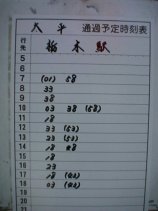 大平 通過予定時刻表
行先 栃木駅
5
6
7 (01) 58
8 33
9 38
10 03 38 (58)
11 18
12 33 (53)
13 23 (53)
14 18 58
15 18
16 23
17 18
18 03
19
20